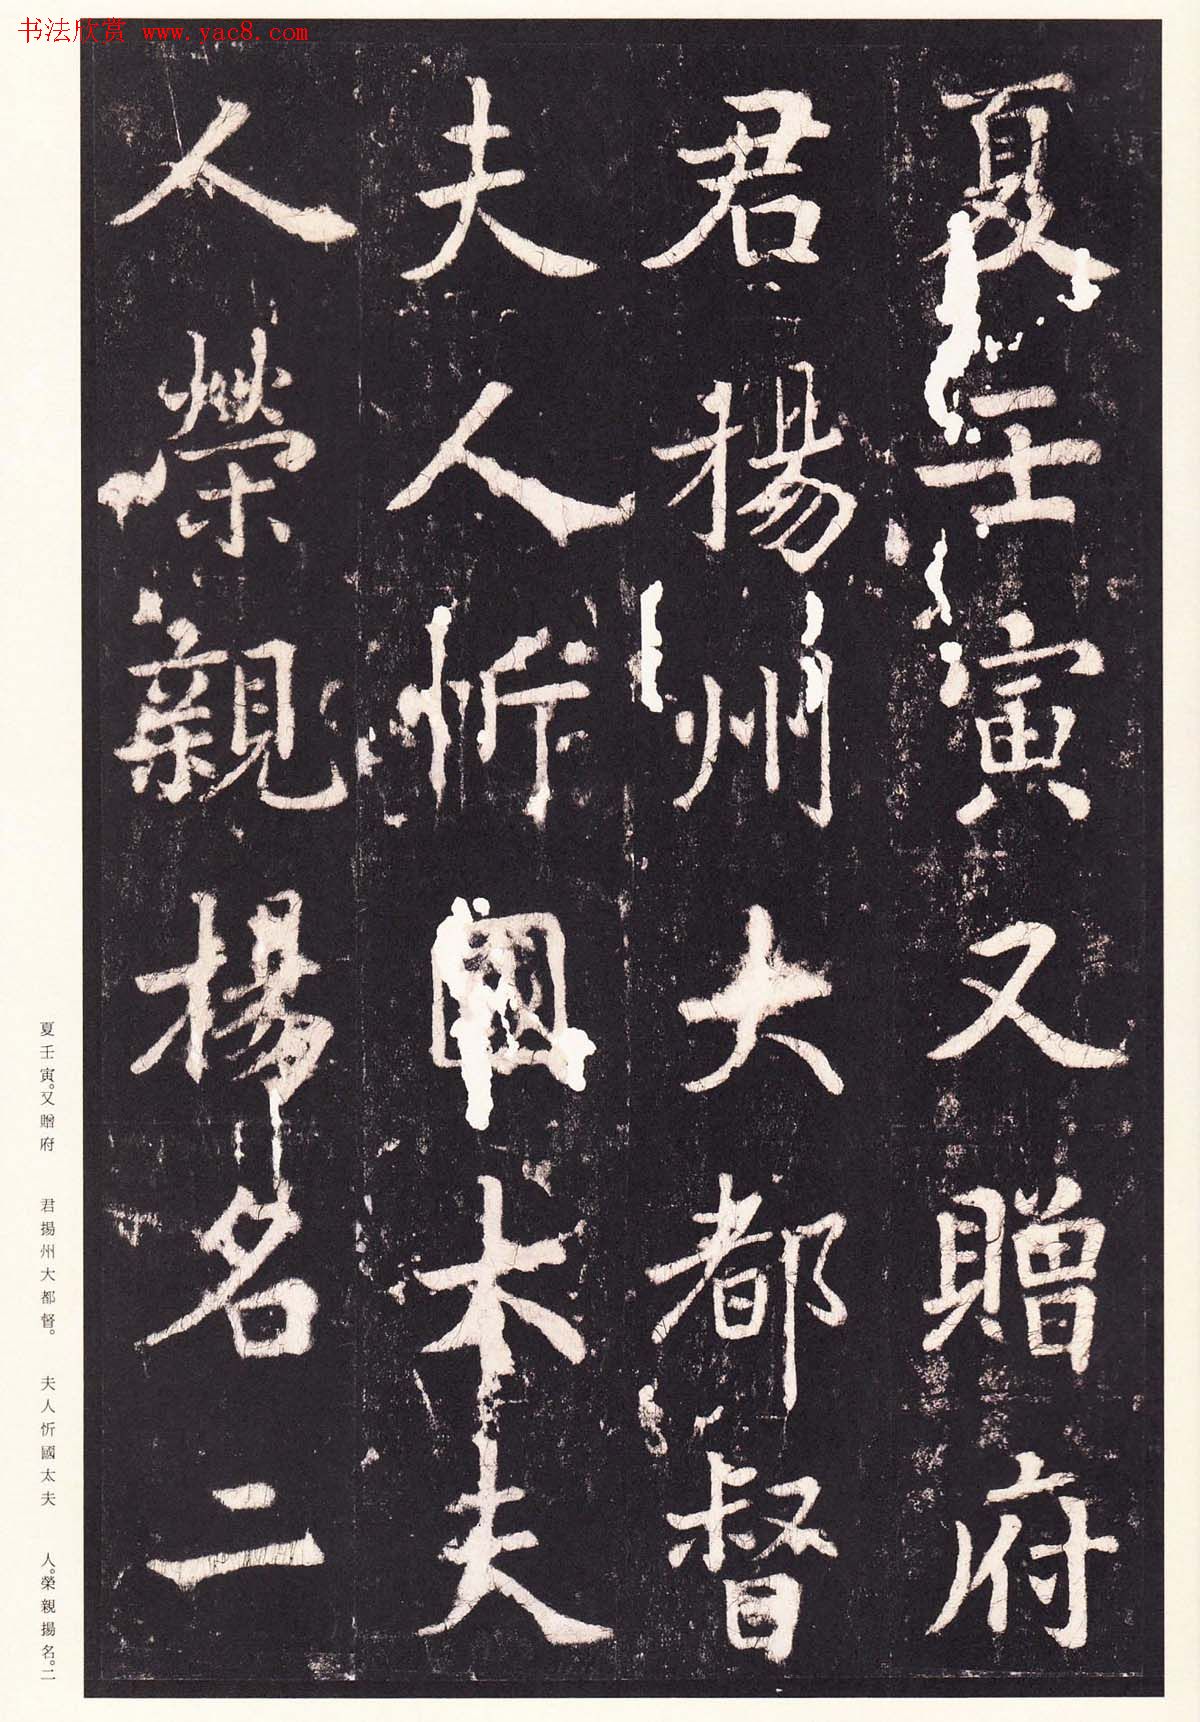 书法欣赏 www.yac8.com
夏壬寅又贈府
君揚州大都督
夫人忻國太夫
人榮親揚名二
夏壬寅。又贈府 君揚州大都督。 夫人忻國太夫 人。榮親揚名。二